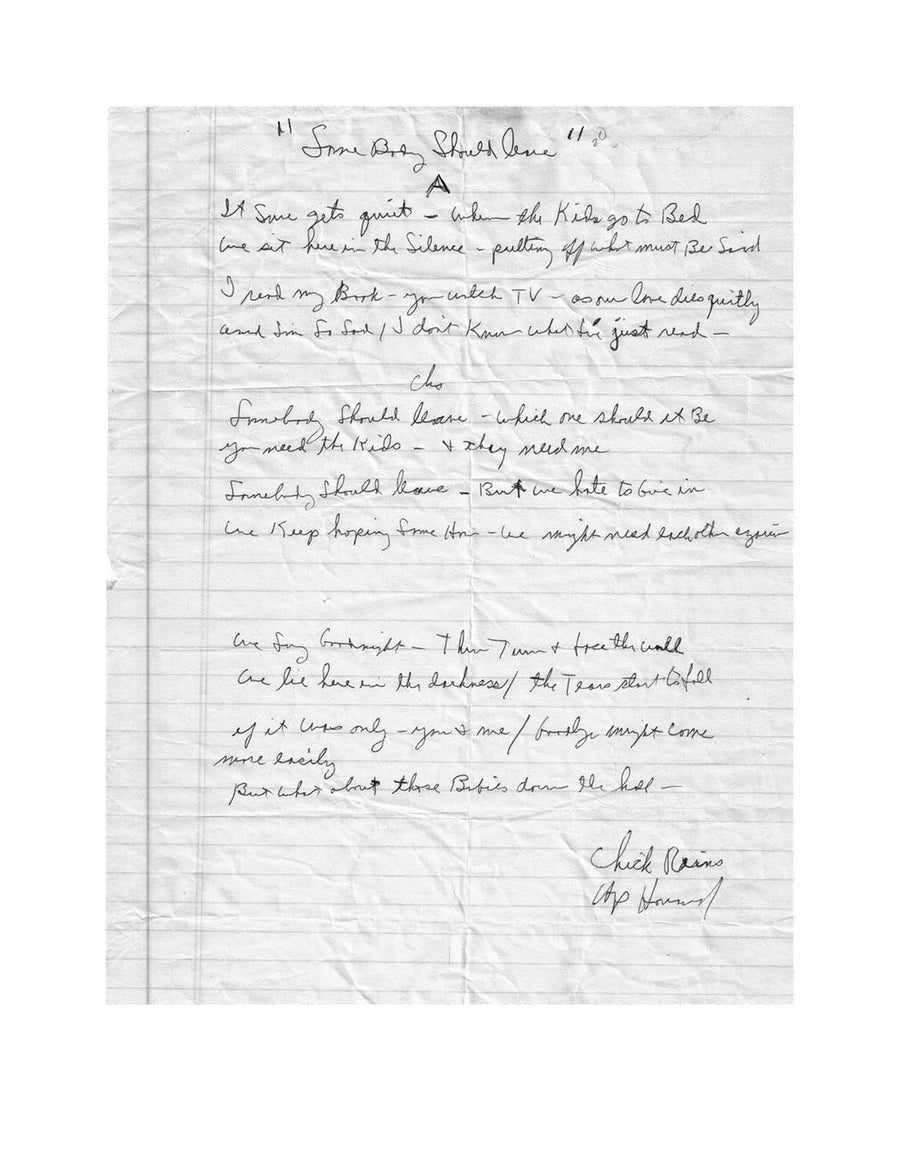 " Some Body Should leave "
A
It Sure gets quiet – when the Kids go to Bed
we sit here in the Silence – putting off what must Be Said
I read my Book – you watch TV – as our love dies quietly
and I'm So Sad / I don't Know what I've just read –
Cho
Somebody Should leave – which one should it Be
you need the Kids – & they need me
Somebody Should leave – But we hate to Give in
we Keep hoping Some How – we might need each other again
we Say Goodnight – Then Turn & face the wall
we lie here in the darkness / the Tears start to fall
if it was only – you & me / Goodbye might come
more easily
But what about those Babies down the hall –
Chick Rains
Howard